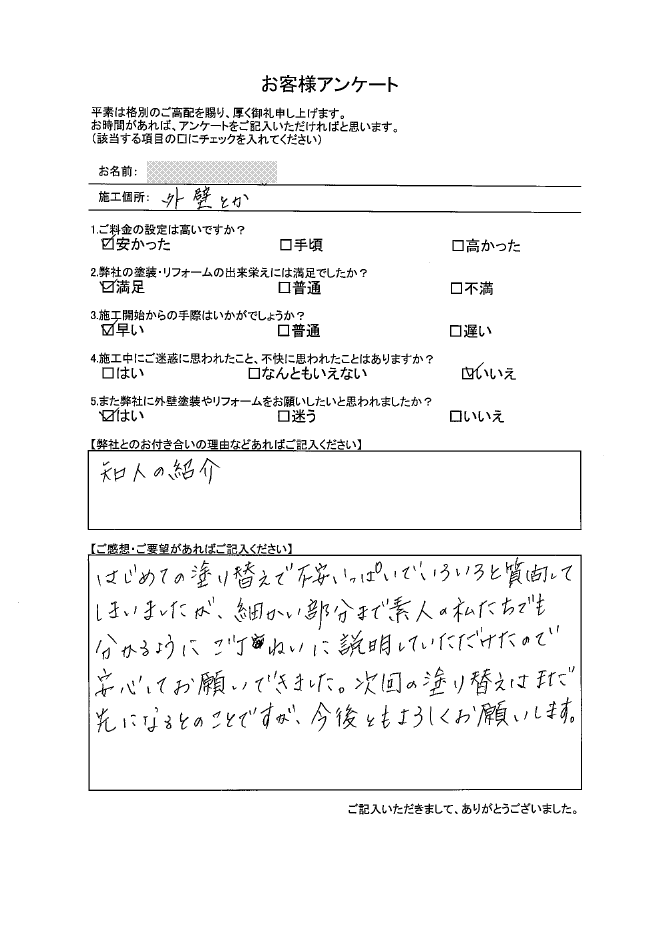 お客様アンケート
平素は格別のご高配を賜り、厚く御礼申し上げます。
お時間があれば、アンケートをご記入いただければと思います。
（該当する項目の口にチェックを入れてください）
お名前：
施工個所： 外壁とか
1.ご料金の設定は高いですか？
☑安かった □手頃 □高かった
2.弊社の塗装・リフォームの出来栄えには満足でしたか？
☑満足 □普通 □不満
3.施工開始からの手際はいかがでしょうか？
☑早い □普通 □遅い
4.施工中にご迷惑に思われたこと、不快に思われたことはありますか？
□はい □なんともいえない ☑いいえ
5.また弊社に外壁塗装やリフォームをお願いしたいと思われましたか？
☑はい □迷う □いいえ
【弊社とのお付き合いの理由などあればご記入ください】
知人の紹介
【ご感想・ご要望があればご記入ください】
はじめての塗り替えで不安いっぱいでいろいろと質問して
しまいましたが、細かい部分まで素人の私たちでも
分かるように ご丁ねいに説明していただけたので
安心してお願いできました。次回の塗り替えはまだ
先になるとのことですが、今後ともよろしくお願いします。
ご記入いただきまして、ありがとうございました。